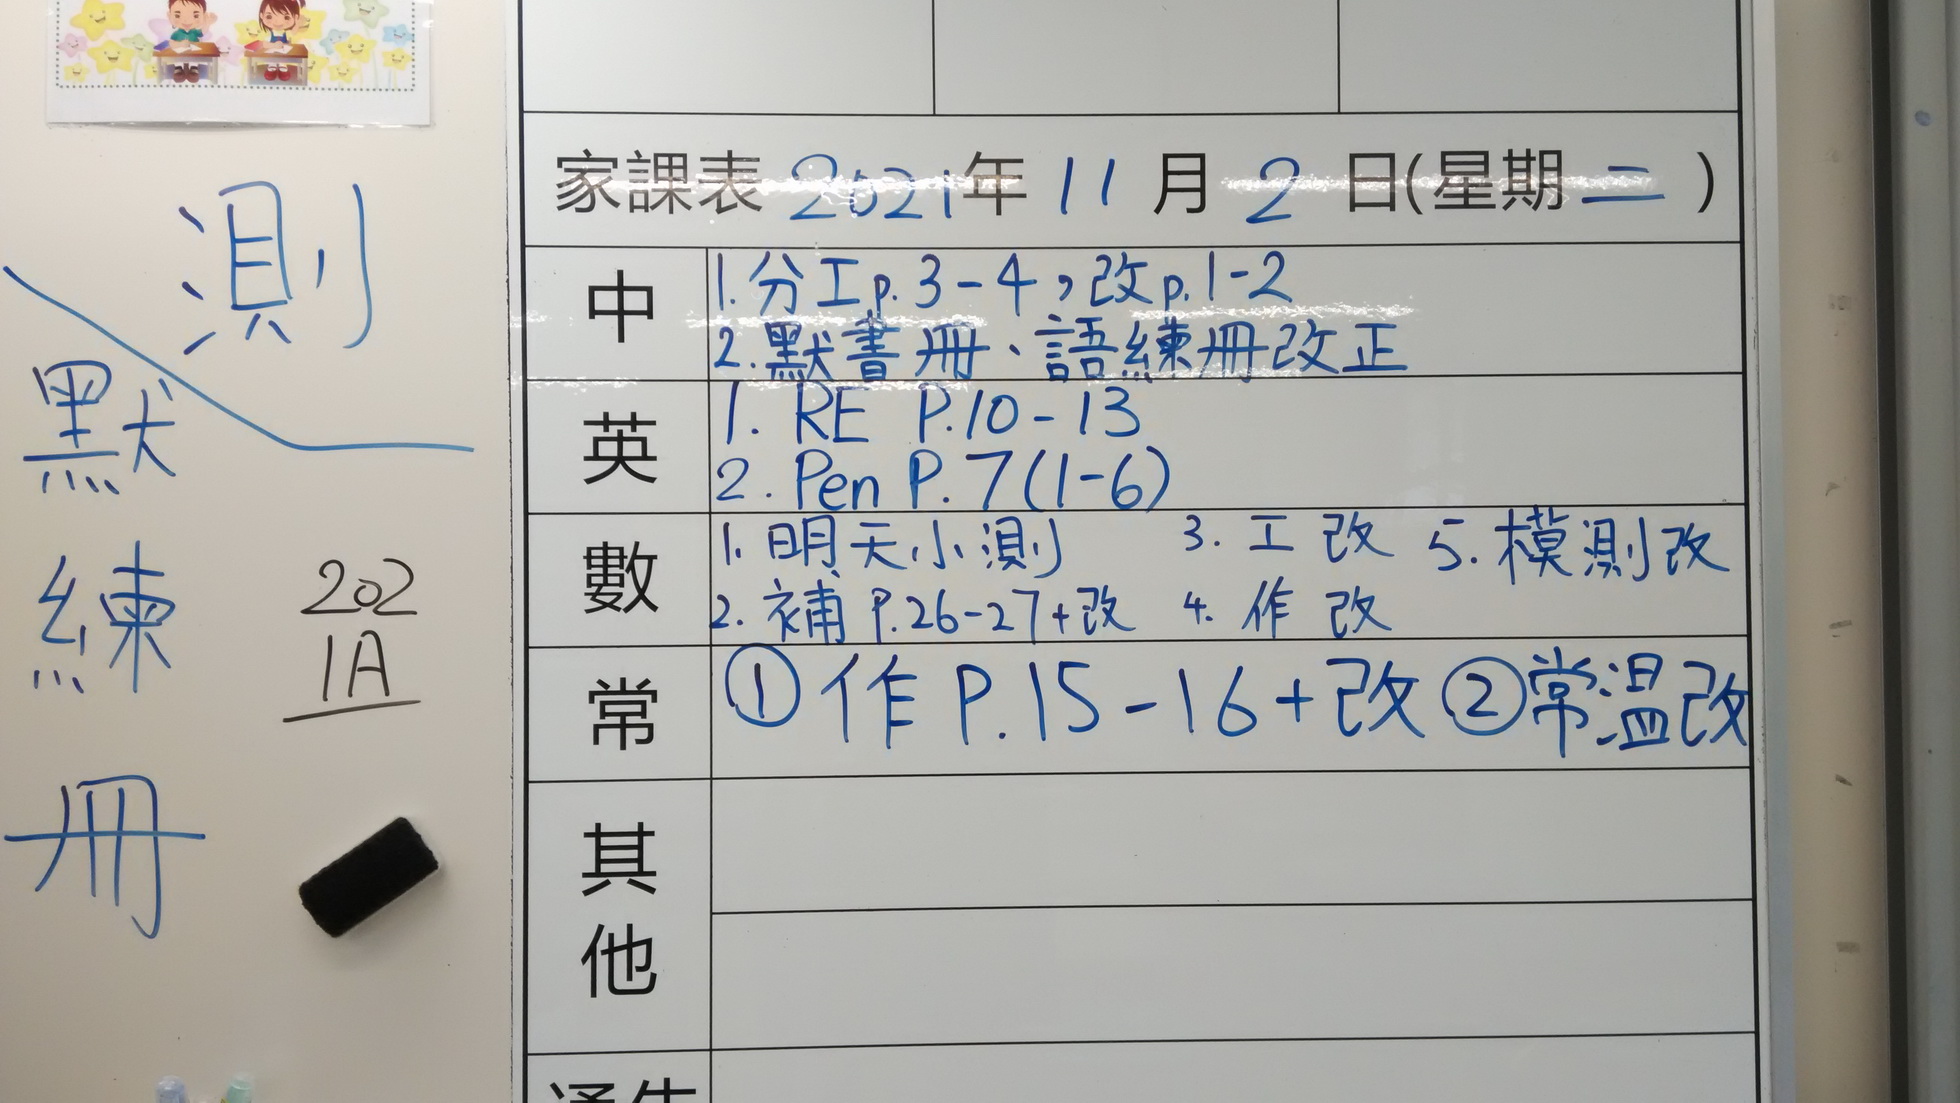 測
默
練
冊
202
1A
家課表 2021年 11 月 2 日(星期 二 )
中
1. 分工p. 3-4,改p.1-2
2. 默書冊、語練冊改正
英
1. RE P.10-13
2. Pen P.7(1-6)
數
1. 明天小測 3. 工改 5. 模測改
2. 補 P.26-27+改 4. 作改
常
① 作 P.15-16+改 ②常溫改
其他
通告